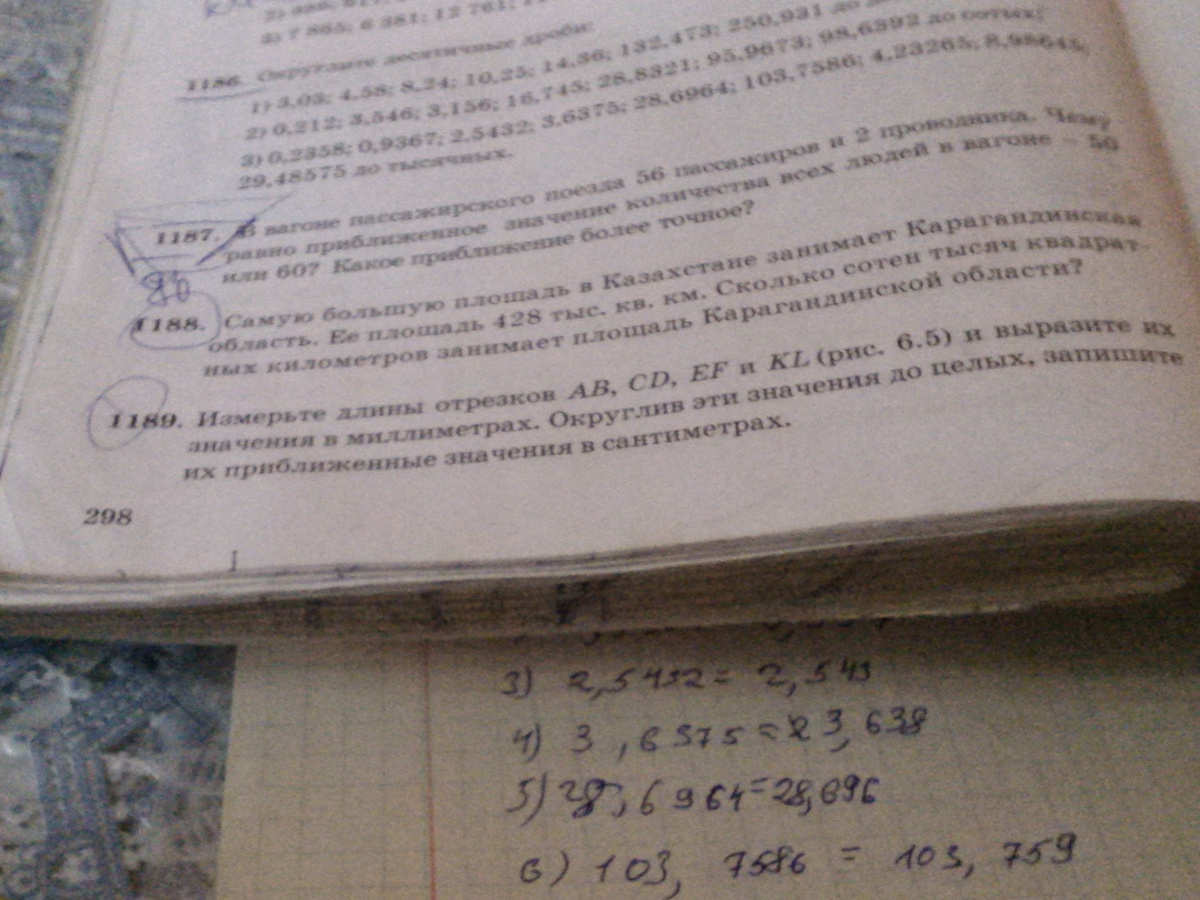 4) 7 865; 6 381; 12 761;
1186. Округлите десятичные дроби:
1) 3,03; 4,58; 8,24; 10,25; 14,36; 132,473; 250,931 до
2) 0,212; 3,546; 3,156; 16,745; 28,8321; 95,9673; 98,6392 до сотых;
3) 0,2358; 0,9367; 2,5432; 3,6375; 28,6964; 103,7586; 4,23265; 8,98645;
29,48575 до тысячных.
1187. В вагоне пассажирского поезда 56 пассажиров и 2 проводника. Чему
равно приближенное значение количества всех людей в вагоне – 50
или 60? Какое приближение более точное?
1188. Самую большую площадь в Казахстане занимает Карагандинская
область. Ее площадь 428 тыс. кв. км. Сколько сотен тысяч квадрат-
ных километров занимает площадь Карагандинской области?
1189. Измерьте длины отрезков AB, CD, EF и KL (рис. 6.5) и выразите их
значения в миллиметрах. Округлив эти значения до целых, запишите
их приближенные значения в сантиметрах.
298
3) 2,5432 = 2,543
4) 3,6375 = 3,638
5) 28,6964 = 28,696
6) 103,7586 = 103,759